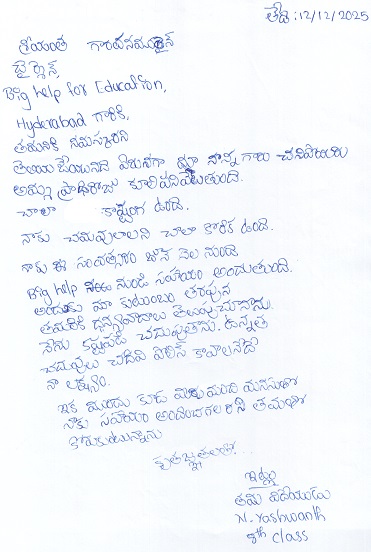 తేది : 12/12/2025
శ్రీయంత గౌరవనీయులైన
ఛైర్మెన్,
Big help for Education,
Hyderabad గారికి,
తమరికి నమస్కరించి
తెలియజేయునది ఏమనగా మా నాన్న గారు చనిపోయారు
అమ్మ ప్రతిరోజు కూలిపనికివెళుతుంది.
చాలా కష్టంగా ఉంది.
నాకు చదువుకోవాలని చాలా కోరిక ఉంది.
నాకు ఈ సంవత్సరం జూన్ నెల నుండి
Big help నుండి సహాయం అందుతుంది.
అందుకు మా కుటుంబం తరపున
తమరికి ధన్యవాదాలు తెలుపుచున్నాను.
నేను కష్టపడి చదువుతాను. ఉన్నత
చదువులు చదివి పోలీస్ కావాలనేదే
నా లక్ష్యం.
ఇక ముందు కూడ మీరు మంచి మనసుతో
నాకు సహాయం అందించగలరని తమతో
కోరుకుంటున్నాను
కృతజ్ఞతలతో...
ఇట్లు
తమ విదేయుడు
N. Yashwanth
8th class